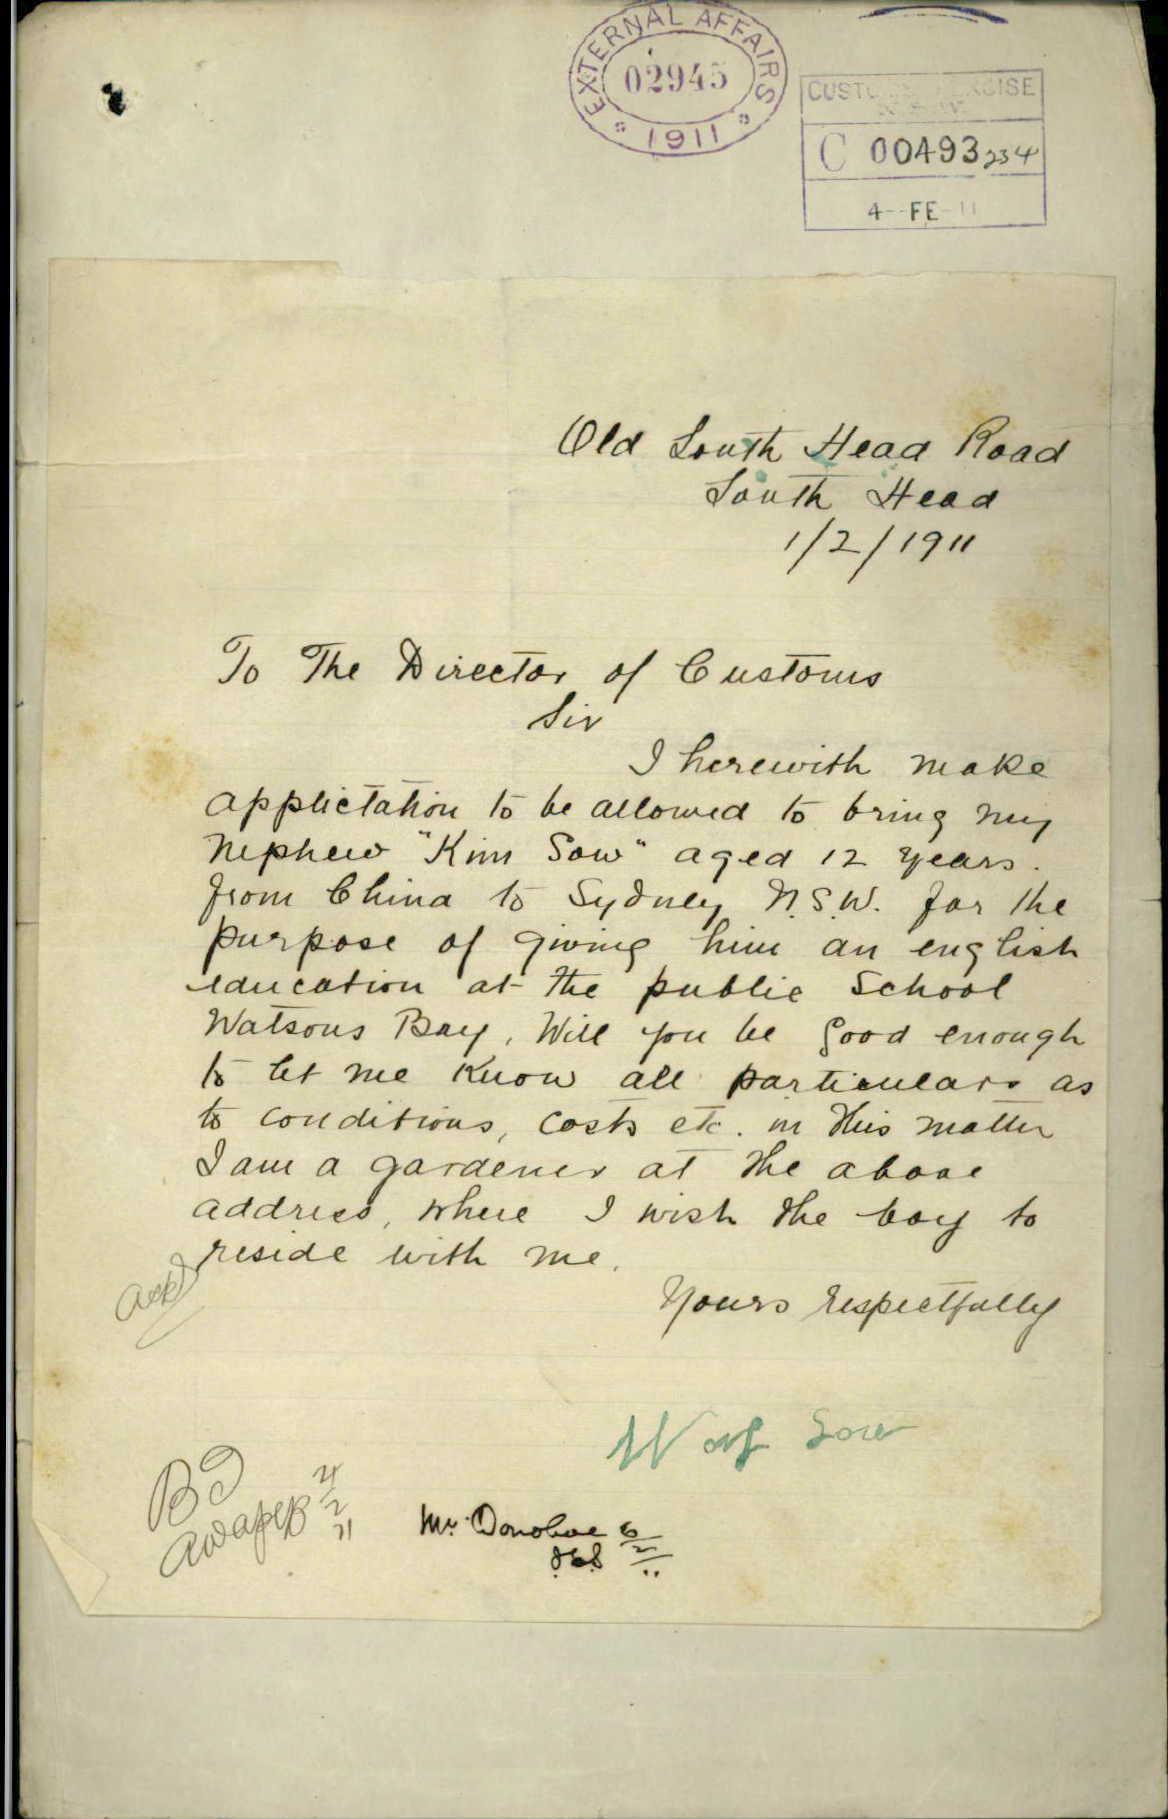 EXTERNAL AFFAIRS
02945
1911
CUSTOMS EXCISE
N.S.W.
C 00493 234
4 - FE 11
Old South Head Road
South Head
1/2/1911
To The Director of Customs
Sir
I herewith make
applictation to be allowed to bring my
Nephew "Kim Sow" aged 12 years.
from China to Sydney N.S.W. for the
purpose of giving him an english
education at the public School
Watsons Bay, Will you be good enough
to let me know all particulars as
to conditions, costs etc. in this matter
I am a gardener at the above
address, where I wish the boy to
reside with me.
Yours respectfully
Ackd
War Sow
BJ
4/2/11
Mr. Donohoe 6/2/11